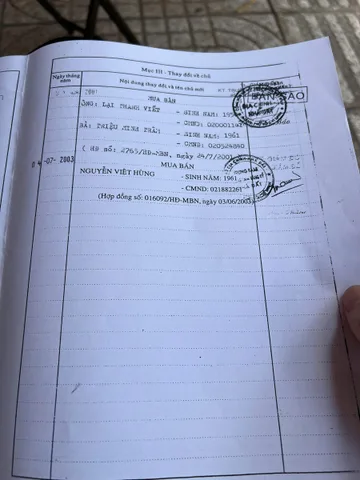 Mục III - Thay đổi về chủ
Ngày tháng năm
Nội dung thay đổi và tên chủ mới
MUA BÁN
ÔNG: LẠI THANH VIẾT - SINH NĂM: 195
- CMND: 02000119
BÀ: - SINH NĂM: 1961
- CMND: 020526860
( HĐ SỐ: 2765/HĐ-MBN, ngày 24/7/2001
04-07-2003
MUA BÁN
NGUYỄN VIẾT HÙNG - SINH NĂM: 1961
- CMND: 021882261
(Hợp đồng số: 016092/HĐ-MBN, ngày 03/06/2003)